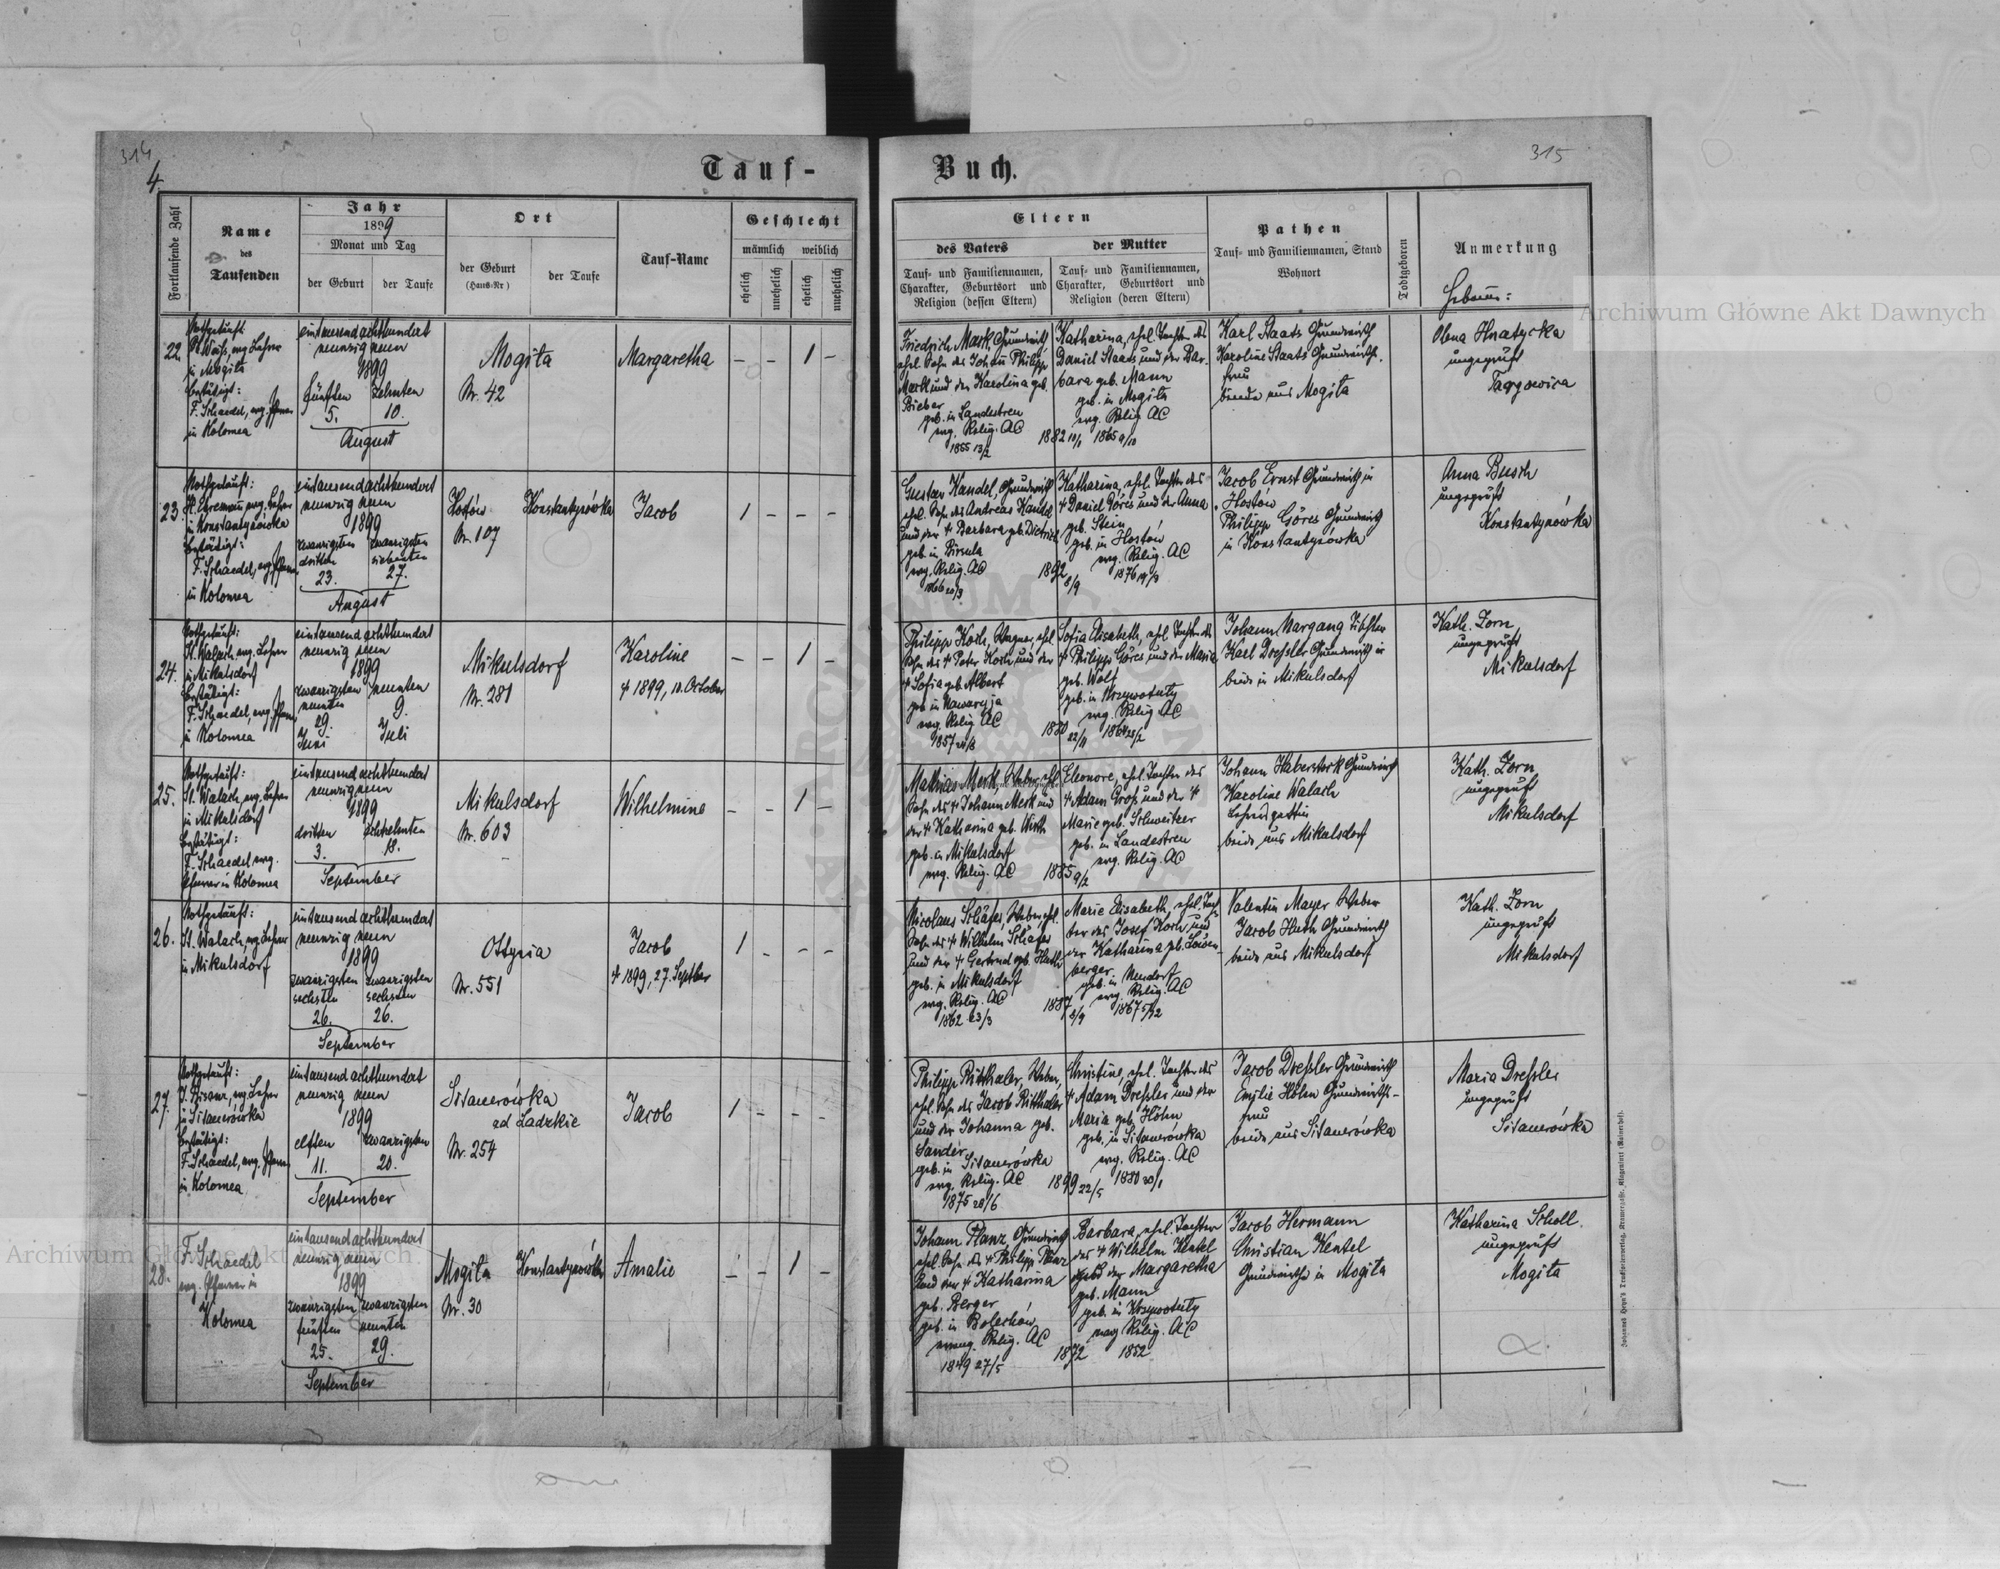 314
4
Tauf-
Fortlaufende Zahl
Name
des
Taufenden
Jahr
1899
Monat und Tag
der Geburt
der Taufe
Ort
der Geburt
(Haus-Nr)
der Taufe
Tauf-Name
Geschlecht
männlich
weiblich
ehelich
unehelich
ehelich
unehelich
22.
Nothgetauft
evg. Lehrer
in Mogiła
bestätigt:
F. Schaedel, evg. Pfarrer
in Kolomea
eintausendachthundert
neunzig neun
1899
fünften
5.
zehnten
10.
August
Mogiła
Nr. 42
Margaretha
– – 1 –
23.
Nothgetauft:
evg. Lehrer
in Konstantynówka
bestätigt:
F. Schaedel, evg. Pfarrer
in Kolomea
eintausendachthundert
neunzig neun
1899
zwanzigsten
dritten
23.
zwanzigsten
siebenten
27.
August
Nr. 107
Konstantynówka
Jacob
1 – – –
24.
Nothgetauft:
St. Walach, evg. Lehrer
in Mikulsdorf
bestätigt:
F. Schaedel, evg. Pfarrer
in Kolomea
eintausend achthundert
neunzig neun
1899
zwanzigsten
neunten
29.
Juni
neunten
9.
Juli
Mikulsdorf
Nr. 281
Karoline
+ 1899, 10. October
– – 1 –
25.
Nothgetauft:
St. Walach, evg. Lehrer
in Mikulsdorf
bestätigt:
F. Schaedel evg.
Pfarrer in Kolomea
eintausend achthundert
neunzig neun
1899
dritten
3.
achtzehnten
18.
September
Mikulsdorf
Nr. 603
Wilhelmine
– – 1 –
26.
Nothgetauft:
St. Walach, evg. Lehrer
in Mikulsdorf
eintausend achthundert
neunzig neun
1899
zwanzigsten
sechsten
26.
zwanzigsten
sechsten
26.
September
Ottynia
Nr. 551
Jacob
+ 1899, 27. Septber
1 – – –
27.
Nothgetauft:
evg. Lehrer
in Sitauerówka
bestätigt:
F. Schaedel, evg. Pfarrer
in Kolomea
eintausend achthundert
neunzig neun
1899
elften
11.
zwanzigsten
20.
September
Sitauerówka
ad Ladzkie
Nr. 254
Jacob
1 – – –
28.
F. Schaedel
evg. Pfarrer in
Kolomea
eintausendachthundert
neunzig neun
1899
zwanzigsten
fünften
25.
zwanzigsten
neunten
29.
September
Mogiła
Nr. 30
Konstantynówka
Amalie
– – 1 –
315
Buch.
Eltern
des Vaters
der Mutter
Tauf- und Familiennamen,
Charakter, Geburtsort und
Religion (dessen Eltern)
Tauf- und Familiennamen,
Charakter, Geburtsort und
Religion (deren Eltern)
Pathen
Tauf- und Familiennamen, Stand
Wohnort
Todtgeboren
Anmerkung
Hebamme:
Friedrich Mark Grundwirth
ehel. Sohn des Johann Philipp
Mark und der Karolina geb.
Bieber
geb. in Landestreu
evg. Relig. AC
1855 13/2
Katharina, ehel. Tochter des
Daniel Staats und der Bar-
bara geb. Mann
geb. in Mogiła
evg. Relig. AC
1882 10/1 1865 9/10
Karl Staats Grundwirth
Karoline Staats Grundwirths-
frau
beide aus Mogiła
Olena Hnatycka
ungeprüft
Gustav Kandel, Grundwirth
ehel. Sohn des Andreas Kandel
und der + Barbara geb. Dietrich
geb. in Birsula
evg. Relig. AC
1866 20/3
Katharina, ehel. Tochter des
+ Daniel Göres und der Anna
geb. Stein
geb. in Hostów
evg. Relig. AC
1892 8/9 1876 19/3
Jacob Ernst Grundwirth in
Hostów
Philipp Göres Grundwirth
in Konstantynówka
Anna Busch
ungeprüft
Konstantynówka
Philipp Koch, Wagner, ehel.
Sohn des + Peter Koch und der
+ Sofia geb. Albert
geb in Nawaryja
evg. Relig AC
Sofia Elisabeth, ehel. Tochter des
+ Philipp Göres und der Maria
geb. Wolf
geb. in Krzywotuły
evg. Relig AC
1880 22/11
Johann Margang Tischler
Karl Dreßler Grundwirth
beide in Mikulsdorf
Kath. Zorn,
ungeprüft
Mikulsdorf
Mathias Merk, Weber, ehel.
Sohn des + Johann Merk und
der + Katharina geb. Wirth
geb. in Mikulsdorf
evg. Relig. AC
Eleonore, ehel. Tochter des
+ Adam Groß und der +
Marie geb. Schweitzer
geb. in Landestreu
evg. Relig. AC
1885 9/2
Johann Haberstock Grundwirth
Karoline Walach
Lehrersgattin
beide aus Mikulsdorf
Kath. Zorn
ungeprüft
Mikulsdorf
Nicolaus Schäfer, Weber, ehl.
Sohn des + Wilhelm Schäfer
und der + Gertrud geb. Huth
geb. in Mikulsdorf
evg. Relig. AC
1862 23/3
Marie Elisabeth, ehel. Toch-
ter des Josef Koch und
der Katharina geb. Löwen-
berger
geb. in Neudorf
evg. Relig. AC
1887 8/9 1867 5/12
Valentin Mayer Weber
Jacob Huth Grundwirth
beide aus Mikulsdorf
Kath. Zorn
ungeprüft
Mikulsdorf
Philipp Ritthaler, Weber,
ehel. Sohn des Jacob Ritthaler
und der Johanna geb.
Sander
geb. in Sitauerówka
evg. Relig. AC
1875 28/6
Christine, ehel. Tochter des
+ Adam Dreßler und der
Maria geb. Höhn
geb. in Sitauerówka
evg. Relig. AC
1899 22/5 1880 30/1
Jacob Dreßler Grundwirth
Emilie Höhn Grundwirths-
frau
beide aus Sitauerówka
Maria Dreßler
ungeprüft
Sitauerówka
Johann Planz Grundwirth
ehel. Sohn des + Philipp Planz
und der + Katharina
geb. Berger
geb. in Bolechów
evang. Relig. AC
1849 27/5
Barbara, ehel. Tochter
des + Wilhelm Kentel
und der Margaretha
geb. Mann
geb. in Krzywotuły
evg Relig. AC
1872 1852
Jacob Hermann
Christian Kentel
Grundwirthe in Mogiła
Katharina Scholl.
ungeprüft
Mogiła
Archiwum Główne Akt Dawnych
Archiwum Główne Akt Dawnych